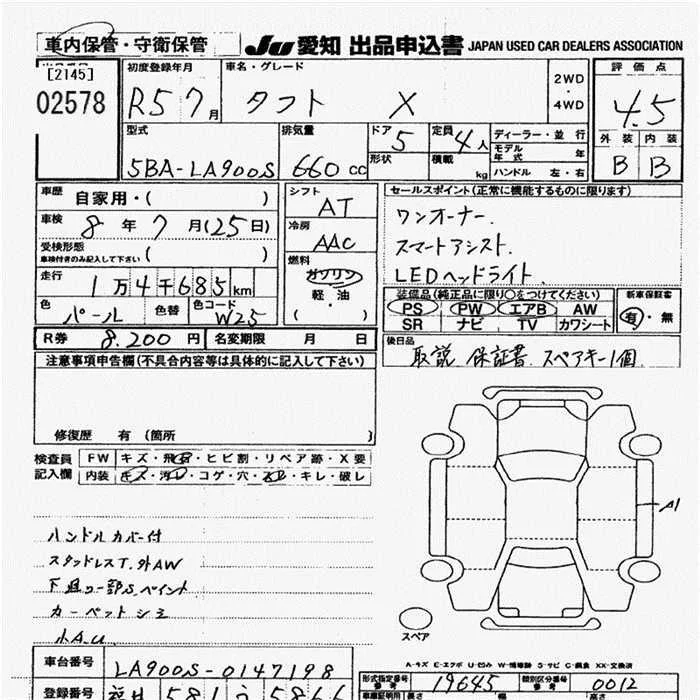 車内保管・守衛保管 JU 愛知 出品申込書 JAPAN USED CAR DEALERS ASSOCIATION
[2145]
02578
初度登録年月 車名・グレード 2WD・4WD 評価点
R5 7月 タフト X 4.5
型式 排気量 ドア 5 定員 4人 ディーラー・並行 外装 内装
5BA-LA900S 660cc 形状 積載 kg モデル年式 年 B B
ハンドル 左・右
車歴 自家用・( ) シフト AT セールスポイント(正常に機能するものに限ります)
車検 8年 7月(25日) 冷房 AAC ワンオーナー.
受検形態 車検付きのみ記入して下さい ( ) 燃料 ガソリン スマートアシスト.
走行 1万4千685km 軽・油 LEDヘッドライト.
色 パール 色替 色コード W25 ( )
装備品(純正品に限り○をつけてください) 新車保証書
PS PW エアB AW 有・無
SR ナビ TV カワシート
R券 8.200円 名変期限 月 日 後日品
取説 保証書 スペアキー1個
注意事項申告欄(不具合内容等は具体的に記入して下さい)
修復歴 有 (箇所 )
検査員記入欄 FW キズ・飛石・ヒビ割・リペア跡・X要
内装 キズ・汚レ・コゲ・穴・スレ・キレ・破レ
A1
ハンドルカバー付
スタッドレスT.外AW
下廻り一部S.ペイント
カーペットシミ
小A.U
スペア
A-キズ E-エクボ U-凹み W-補修跡 S-サビ C-腐食 XX-交換済
車台番号 LA900S-0147198
型式指定番号 19645 類別区分番号 0012
登録番号 581 5866
長さ 幅 高さ